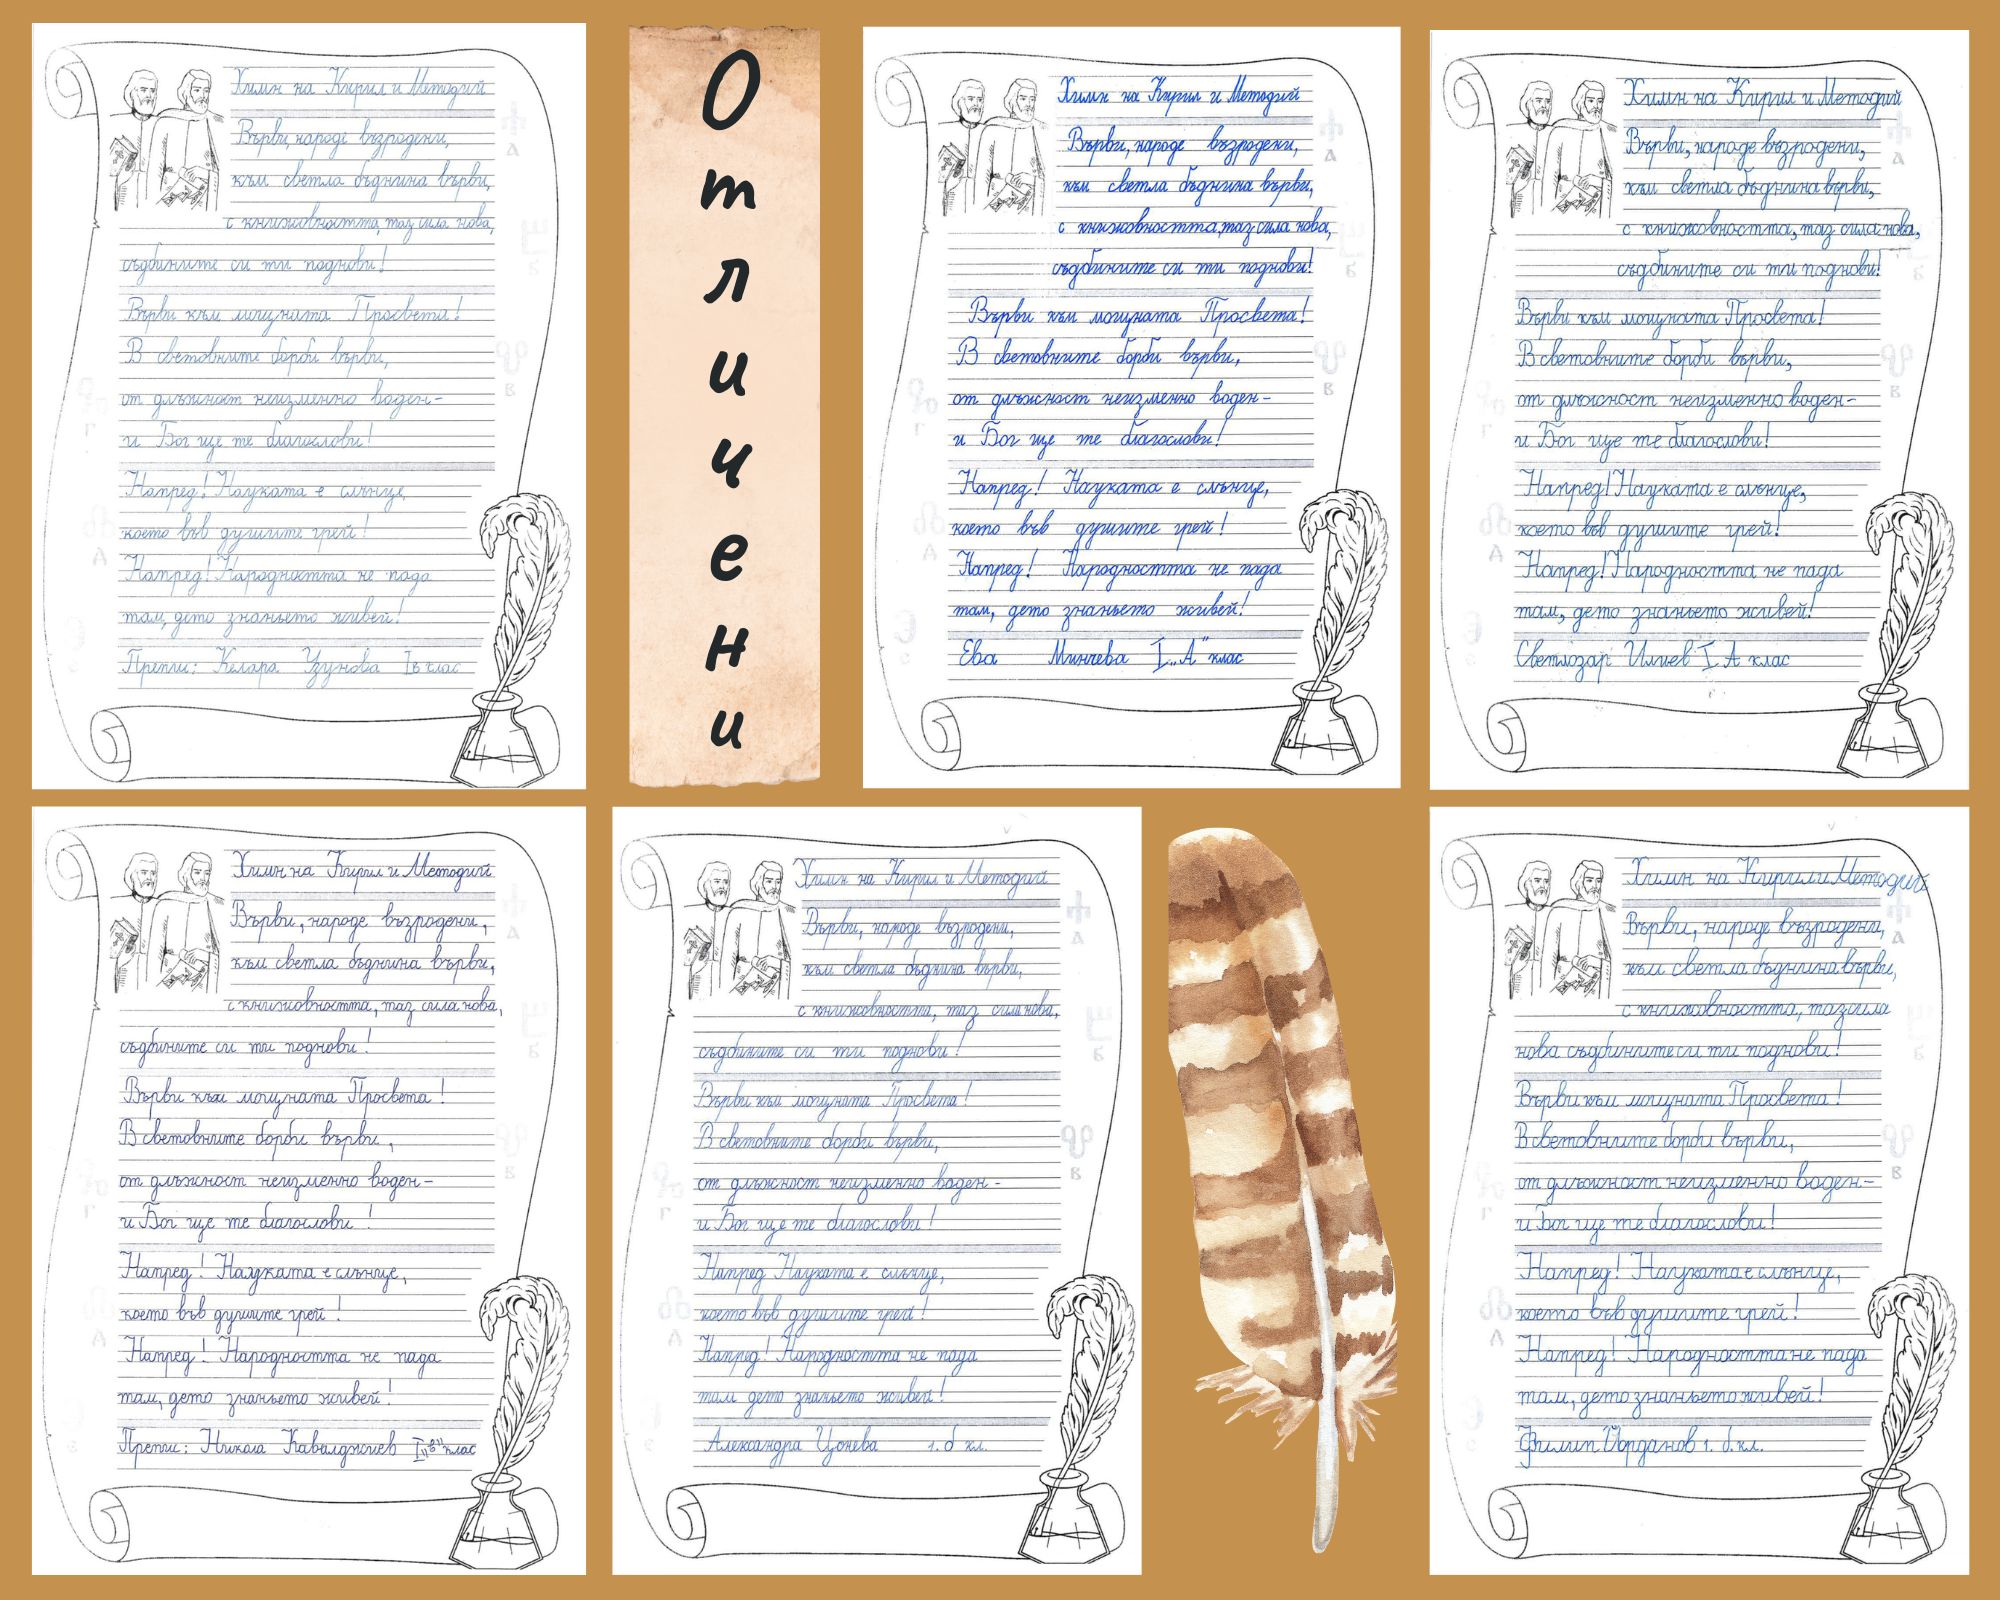 Химн на Кирил и Методий
Върви, народе възродени,
към светла бъднина върви,
с книжовността, таз сила нова,
съдбините си ти поднови!
Върви към мощната Просвета!
В световните борби върви,
от длъжност неизменно воден-
и Бог ще те благослови!
Напред! Науката е слънце,
което във душите грей!
Напред! Народността не пада
там, дето знаньето живей!
Препи: Келара Узунова Iв клас
Отличени
Химн на Кирил и Методий
Върви, народе възродени,
към светла бъднина върви,
с книжовността, таз сила нова,
съдбините си ти поднови!
Върви към мощната Просвета!
В световните борби върви,
от длъжност неизменно воден-
и Бог ще те благослови!
Напред! Науката е слънце,
което във душите грей!
Напред! Народността не пада
там, дето знаньето живей!
Ева Минчева I „А" клас
Химн на Кирил и Методий
Върви, народе възродени,
към светла бъднина върви,
с книжовността, таз сила нова,
съдбините си ти поднови!
Върви към мощната Просвета!
В световните борби върви,
от длъжност неизменно воден-
и Бог ще те благослови!
Напред! Науката е слънце,
което във душите грей!
Напред! Народността не пада
там, дето знаньето живей!
Светлозар Илиев I А клас
Химн на Кирил и Методий
Върви, народе възродени,
към светла бъднина върви,
с книжовността, таз сила нова,
съдбините си ти поднови!
Върви към мощната Просвета!
В световните борби върви,
от длъжност неизменно воден-
и Бог ще те благослови!
Напред! Науката е слънце,
което във душите грей!
Напред! Народността не пада
там, дето знаньето живей!
Препи: Никола Кавалджиев I „в" клас
Химн на Кирил и Методий
Върви, народе възродени,
към светла бъднина върви,
с книжовността, таз сила нова,
съдбините си ти поднови!
Върви към мощната Просвета!
В световните борби върви,
от длъжност неизменно воден-
и Бог ще те благослови!
Напред Науката е слънце,
което във душите грей!
Напред! Народността не пада
там дето знаньето живей!
Александра Цонева 1. б кл.
Химн на Кирил и Методий
Върви, народе възродени,
към светла бъднина върви,
с книжовността, таз сила
нова съдбините си ти поднови!
Върви към мощната Просвета!
В световните борби върви,
от длъжност неизменно воден-
и Бог ще те благослови!
Напред! Науката е слънце,
което във душите грей!
Напред! Народността не пада
там, дето знаньето живей!
Филип Йорданов 1. б. кл.